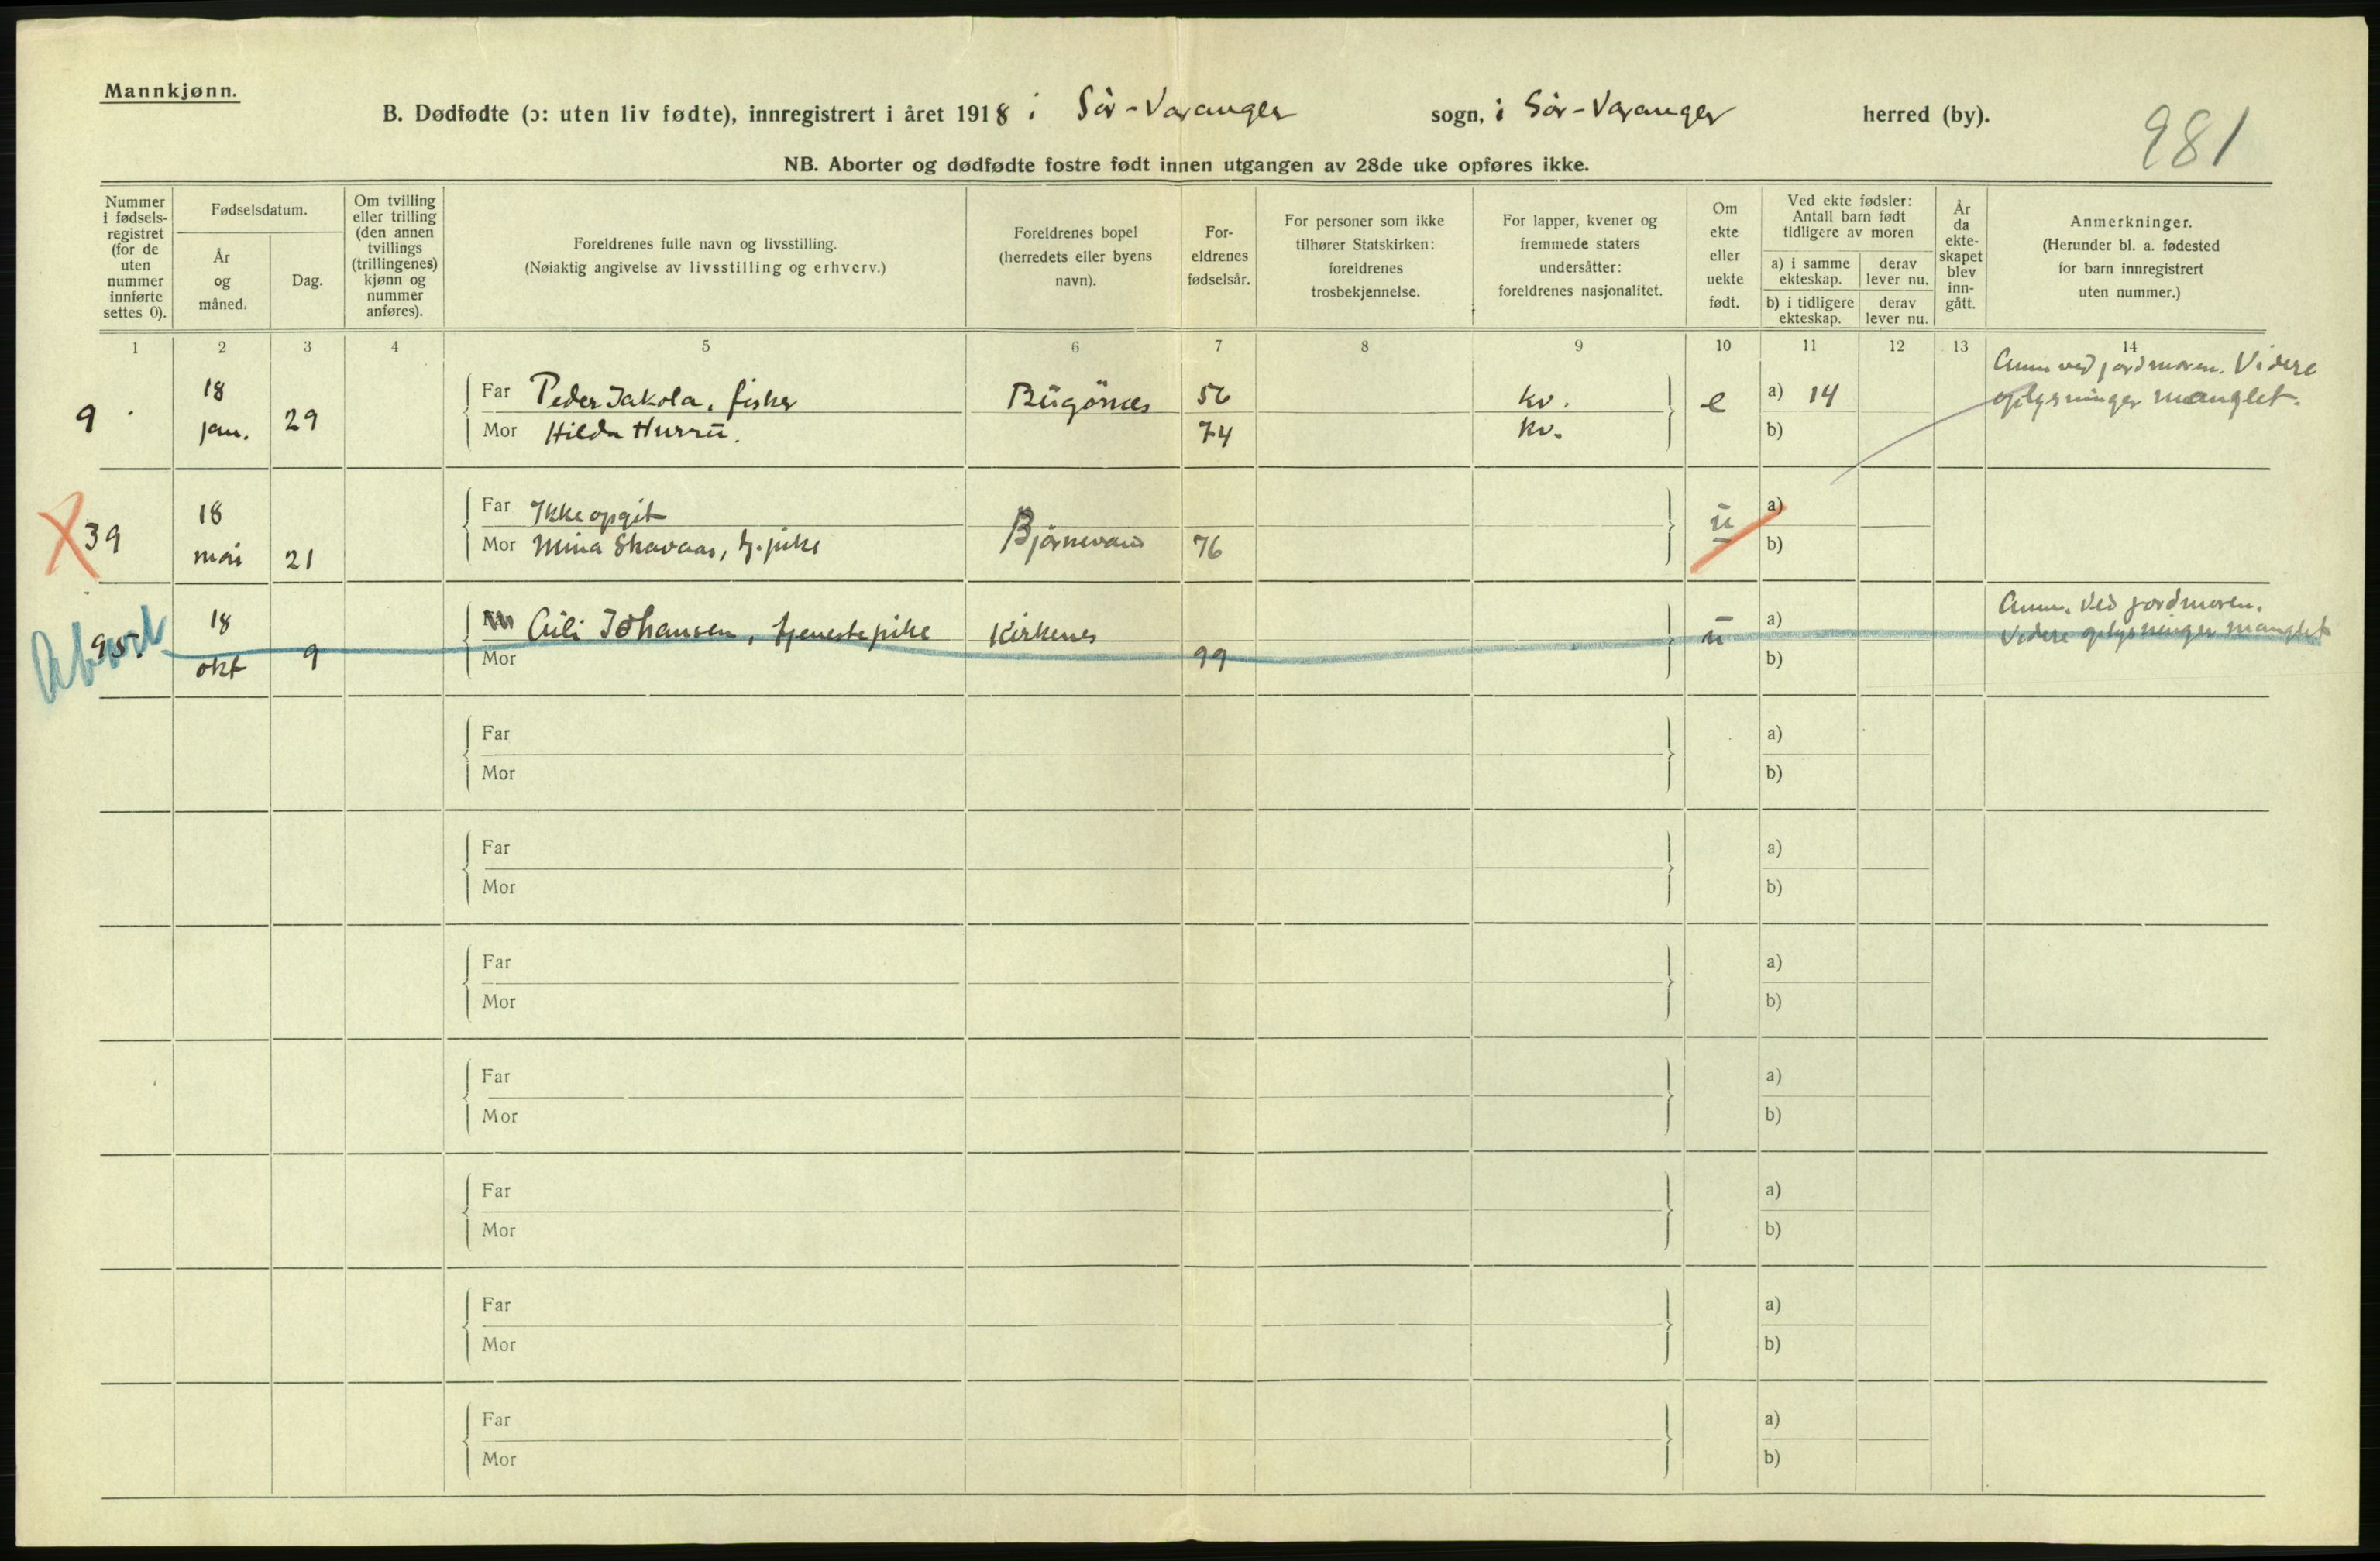 Mannkjønn.
B. Dødfødte (ɔ: uten liv fødte), innregistrert i året 1918 i Sör-Varanger sogn, i Sör-Varanger herred (by).
981
NB. Aborter og dødfødte fostre født innen utgangen av 28de uke opføres ikke.
Nummer
i fødsels-
registret
(for de
uten
nummer
innførte
settes 0).
Fødselsdatum.
År
og
måned.
Dag.
Om tvilling
eller trilling
(den annen
tvillings
(trillingenes)
kjønn og
nummer
anføres).
Foreldrenes fulle navn og livsstilling.
(Nøiaktig angivelse av livsstilling og erhverv.)
Foreldrenes bopel
(herredets eller byens
navn).
For-
eldrenes
fødselsår.
For personer som ikke
tilhører Statskirken:
foreldrenes
trosbekjennelse.
For lapper, kvener og
fremmede staters
undersåtter:
foreldrenes nasjonalitet.
Om
ekte
eller
uekte
født.
Ved ekte fødsler:
Antall barn født
tidligere av moren
a) i samme
ekteskap.
derav
lever nu.
b) i tidligere
ekteskap.
derav
lever nu.
År
da
ekte-
skapet
blev
inn-
gått.
Anmerkninger.
(Herunder bl. a. fødested
for barn innregistrert
uten nummer.)
1 2 3 4 5 6 7 8 9 10 11 12 13 14
9 18 jan. 29
Far Peder Jakola, fisker Bugönes 56 kv. e a) 14
Mor Hilda Hurru. 74 kv. b)
Anm ved jordmoren. Videre
oplysninger manglet.
39 18 mai 21
Far Ikke opgit ū a)
Mor Mina Skavaas, tj.pike Björnevand 76 b)
Abort
18 okt 9
Far Johansen, tjenestepike Kirkenes ū a)
Mor 99 b)
Anm. Ved jordmoren.
Videre oplysninger manglet
Far a)
Mor b)
Far a)
Mor b)
Far a)
Mor b)
Far a)
Mor b)
Far a)
Mor b)
Far a)
Mor b)
Far a)
Mor b)